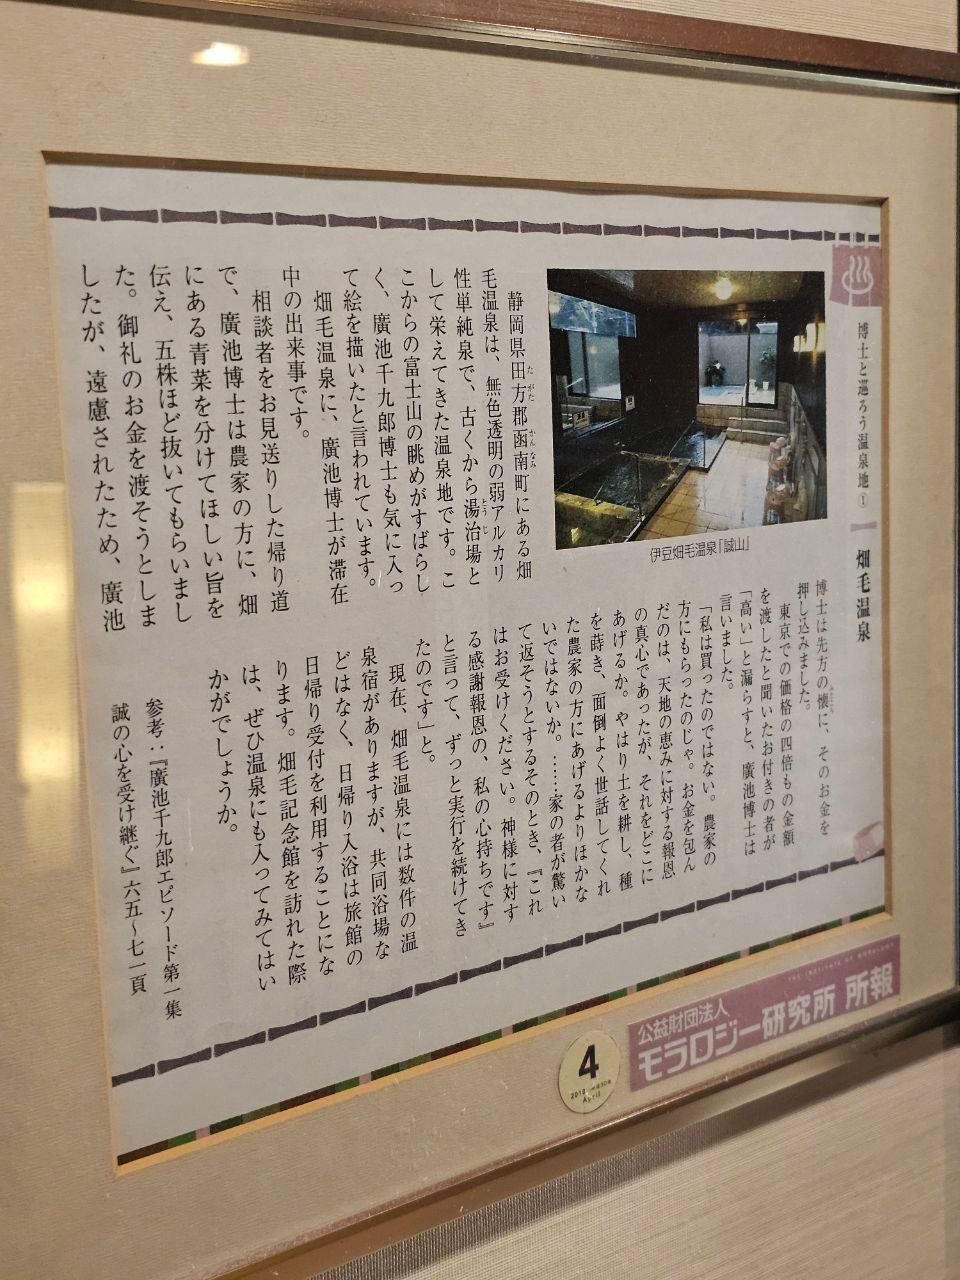 博士と巡ろう温泉地①
畑毛温泉
伊豆畑毛温泉「誠山」
静岡県田方郡函南町にある畑
たがた
かんなみ
毛温泉は、無色透明の弱アルカリ
性単純泉で、古くから湯治場と
とうじ
して栄えてきた温泉地です。こ
こからの富士山の眺めがすばらし
く、廣池千九郎博士も気に入っ
て絵を描いたと言われています。
畑毛温泉に、廣池博士が滞在
中の出来事です。
相談者をお見送りした帰り道
で、廣池博士は農家の方に、畑
にある青菜を分けてほしい旨を
伝え、五株ほど抜いてもらいまし
た。御礼のお金を渡そうとしま
したが、遠慮されたため、廣池
博士は先方の懐に、そのお金を
ふところ
押し込みました。
東京での価格の四倍もの金額
を渡したと聞いたお付きの者が
「高い」と漏らすと、廣池博士は
言いました。
「私は買ったのではない。農家の
方にもらったのじゃ。お金を包ん
だのは、天地の恵みに対する報恩
の真心であったが、それをどこに
あげるか。やはり土を耕し、種
を蒔き、面倒よく世話してくれ
た農家の方にあげるよりほかな
いではないか。……家の者が驚い
て返そうとするそのとき、『これ
はお受けください。神様に対す
る感謝報恩の、私の心持ちです』
と言って、ずっと実行を続けてき
たのです」と。
現在、畑毛温泉には数件の温
泉宿がありますが、共同浴場な
どはなく、日帰り入浴は旅館の
日帰り受付を利用することにな
ります。畑毛記念館を訪れた際
は、ぜひ温泉にも入ってみてはい
かがでしょうか。
参考：『廣池千九郎エピソード第一集
誠の心を受け継ぐ』六五〜七一頁
THE INSTITUTE OF MORALOGY
公益財団法人
モラロジー研究所 所報
4
2018 平成30年
April